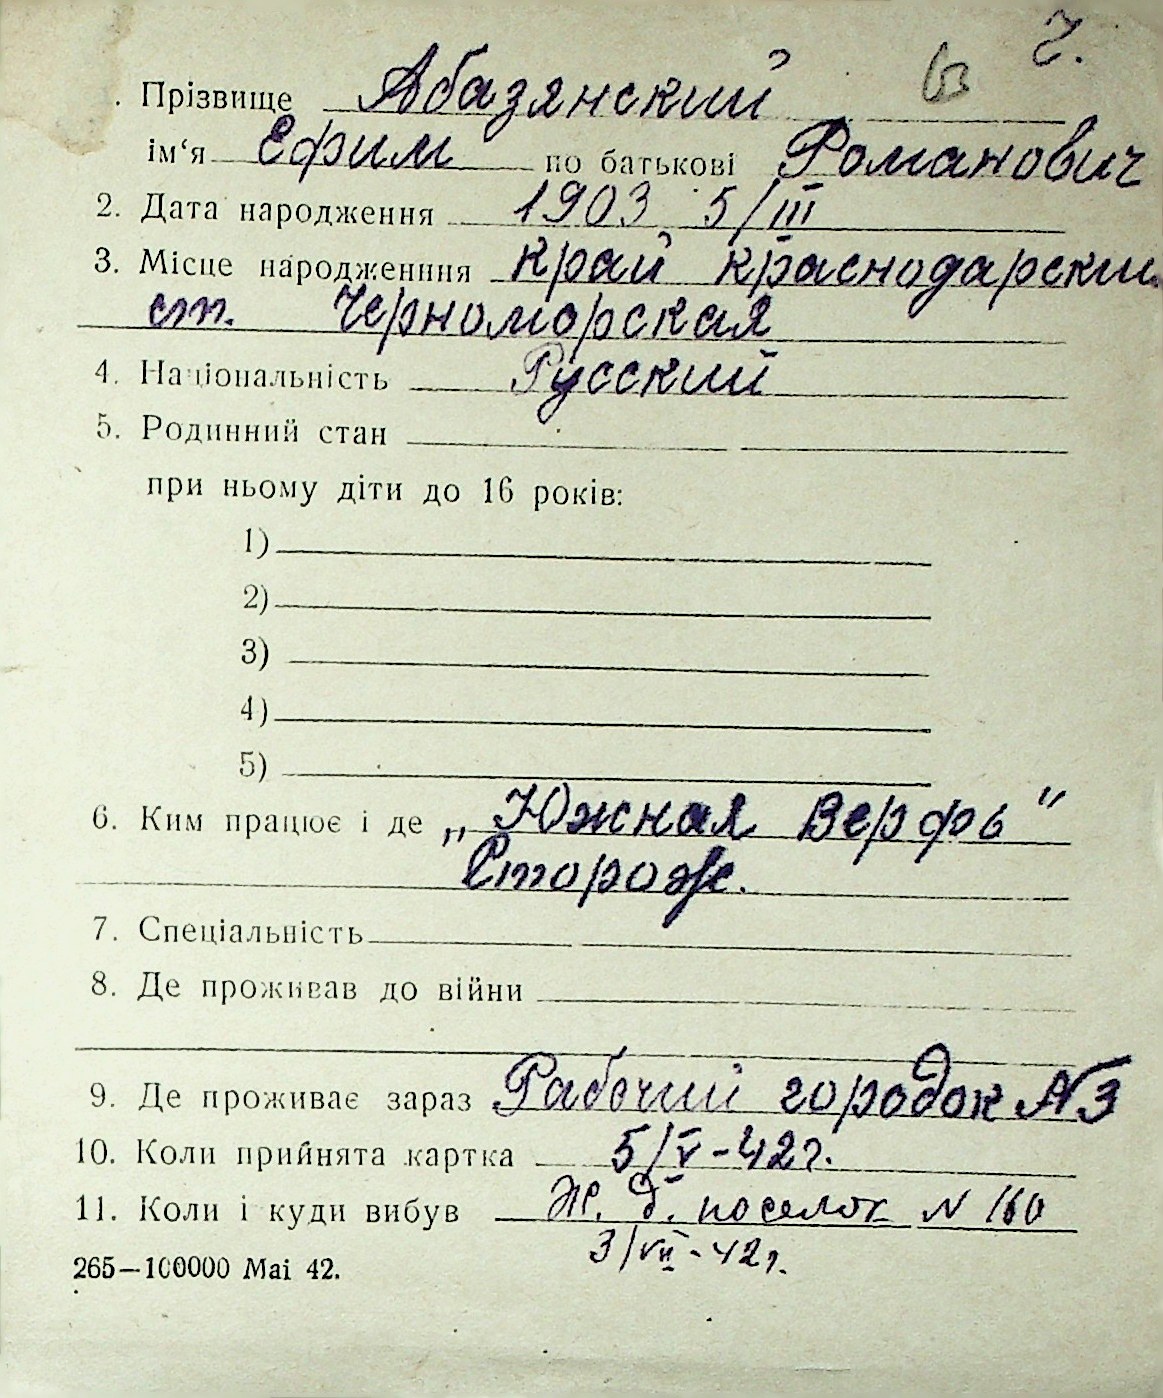 ч.
. Прізвище Абазянский
ім‘я Ефим по батькові Романович
2. Дата народження 1903 5/III
3. Місце народженння край краснодарский
ст. Черноморская
4. Національність Русский
5. Родинний стан
при ньому діти до 16 років:
1)
2)
3)
4)
5)
6. Ким працює і де „Южная Верфь“
Сторож.
7. Спеціальність
8. Де проживав до війни
9. Де проживає зараз Рабочий городок №3
10. Коли прийнята картка 5/V-42г.
11. Коли і куди вибув Ж. д. поселок N 160
3/VII-42г.
265—100000 Mai 42.